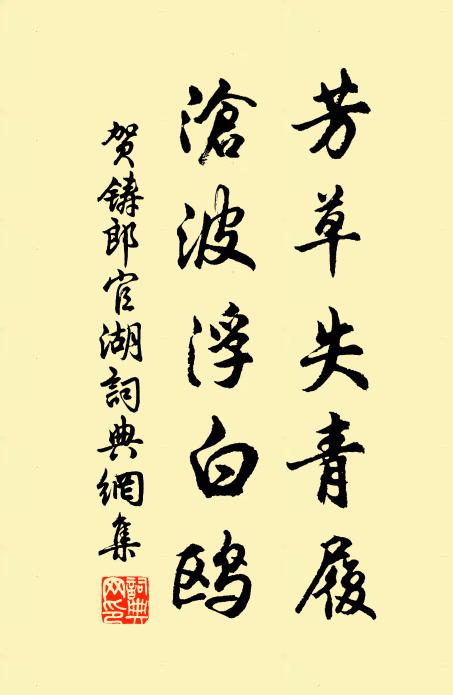 芳草失青履
滄波浮白鸥
贺鑄郎官湖詞典網集
詞典网印